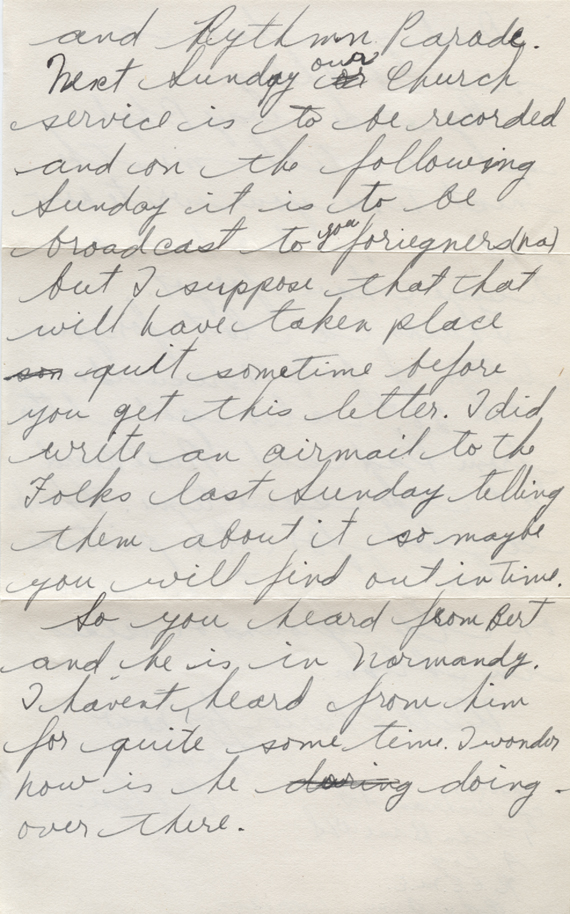 and Rythmn Parade.
Next Sunday our or Church
service is to be recorded
and on the following
Sunday it is to be
broadcast to you foriegners(ha)
but I suppose that that
will have taken place
son quit sometime before
you get this letter. I did
write an airmail to the
Folks last Sunday telling
them about it so maybe
you will find out in time.
So you heard from Bert
and he is in Normandy.
I havent heard from him
for quite some time. I wonder
how is he doing -
over there.